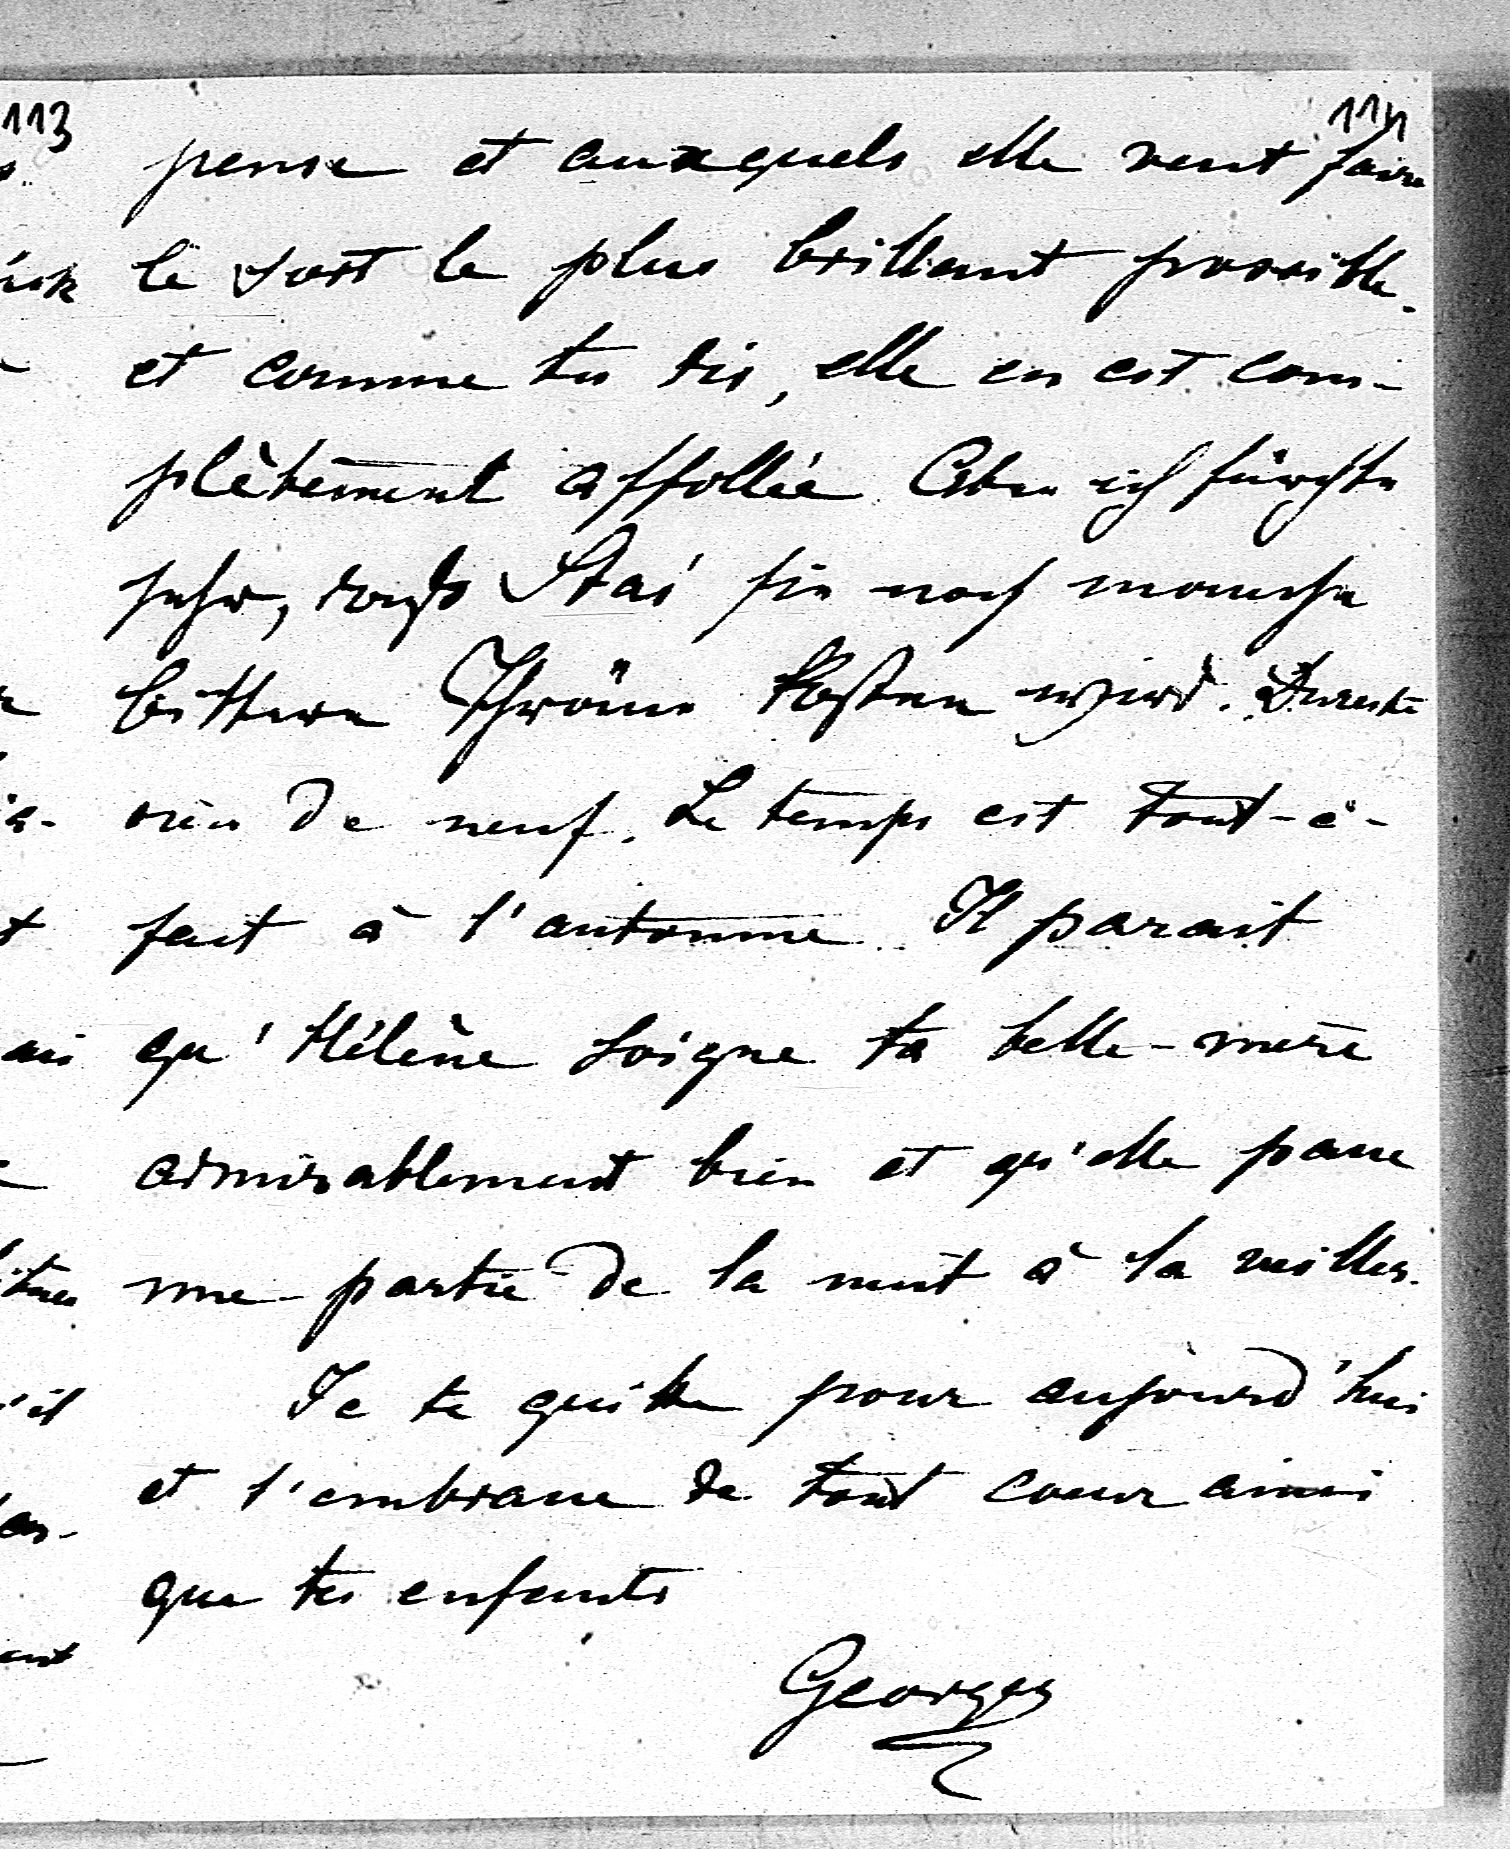 113
114
pense et auxquels elle veut faire
le sort le plus brillant possible.
et comme tu dis, elle en est com-
plètement affollée. Aber ich fürchte
sehr, daß Stasi sie noch manche
bittere Thräne kosten wird. Du reste
rien de neuf. Le temps est tout-à-
fait à l'automne. Il parait
qu'Hélène soigne ta belle-mère
admirablement bien et qu'elle passe
une partie de la nuit à la veiller.
Je te quitte pour aujourd'hui
et t'embrasse de tout coeur ainsi
que tes enfants
Georges